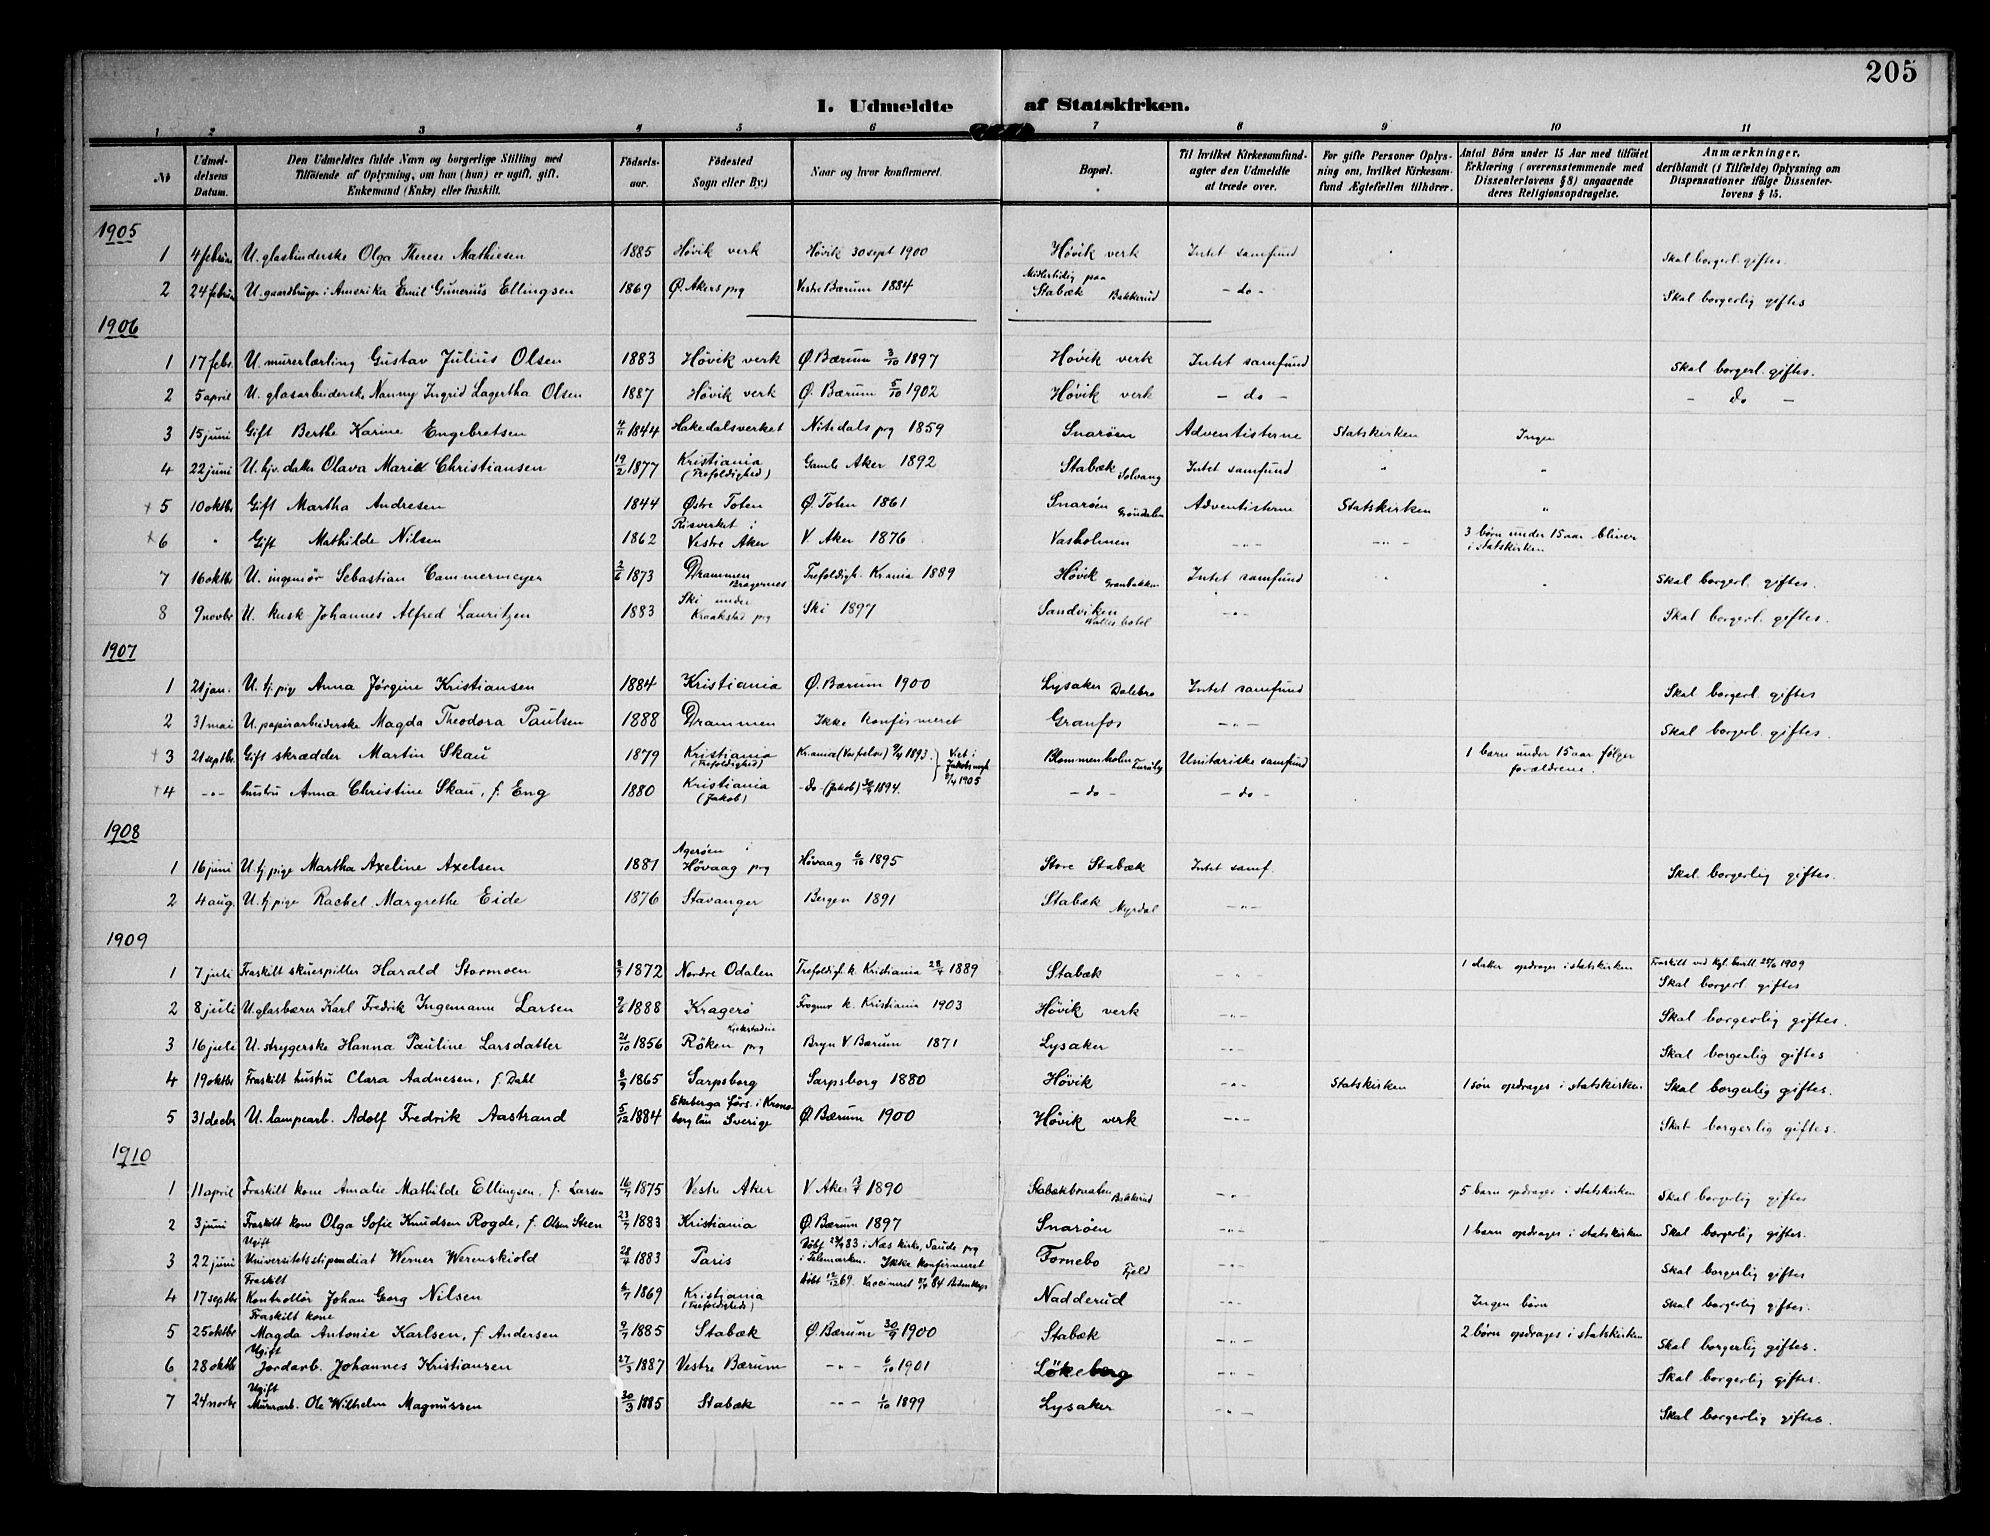 205
I. Udmeldte af Statskirken.
1 2 3 4 5 6 7 8 9 10 11
No
Udmeldelsens Datum.
Den Udmeldtes fulde Navn og borgerlige Stilling med Tilføiende af Oplysning, om han (hun) er ugift, gift, Enkemand (Enke) eller fraskilt.
Fødselsaar.
Fødested Sogn eller By.)
Naar og hvor konfirmeret.
Bopæl.
Til hvilket Kirkesamfund agter den Udmeldte at træde over.
For gifte Personer Oplysning om, hvilket Kirkesamfund Ægtefællen tilhører.
Antal Børn under 15 Aar med tilføiet Erklæring (overensstemmende med Dissenterlovens § 8) angaaende deres Religionsopdragelse.
Anmærkninger, deriblandt (i Tilfælde) Oplysning om Dispensationer ifølge Dissenterlovens § 15.
1905
1 4 februar U. glasbinderske Olga Therese Mathiesen 1885 Høvik verk Høvik 30 sept 1900 Høvik verk Intet samfund Skal borgerl. giftes.
2 24 februar U. gaardbruger i Amerika Emil Gunerius Ellingsen 1869 Ø. Akers prg Vestre Bærum 1884 Midlertidig paa Stabæk Bakkerud - do - Skal borgerlig giftes
1906
1 17 febr. U. murerlærling Gustav Julius Olsen 1883 Høvik verk Ø. Bærum 3/10 1897 Høvik verk Intet samfund Skal borgerl. giftes.
2 5 april U. glasarbeiderske Nanny Ingrid Lagertha Olsen 1887 Høvik verk Ø. Bærum 5/10 1902 Høvik verk - do - - do -
3 15 juni Gift Berthe Karine Engebretsen 4/11 1844 Hakedalsverket Nitedals prg 1859 Snarøen Adventisterne Statskirken Ingen
4 22 juni U. hjv. datter Olava Marie Christiansen 19/2 1877 Kristiania (Trefoldighed) Gamle Aker 1892 Stabæk Solvang Intet samfund " "
+ 5 10 oktbr Gift Martha Andresen 1844 Østre Toten Ø. Toten 1861 Snarøen Grøndalen Adventisterne Statskirken "
+ 6 " Gift Mathilde Nilsen 1862 Risverket i Vestre Aker V. Aker 1876 Vasholmen - " - - " - 3 børn under 15 aar bliver i statskirken
7 16 oktbr U. ingeniør Sebastian Cammermeyer 2/6 1873 Drammen Bragernes Trefoldigh. Kr.ania 1889 Høvik Granbakken Intet samfund " " Skal borgerl. giftes.
8 9 novbr U. kusk Johannes Alfred Lauritzen 1883 Ski under Kraakstad prg Ski 1897 Sandviken Walles hotel - " - Skal borgerl. giftes.
1907
1 21 jan. U. tj. pige Anna Jørgine Kristiansen 1884 Kristiania Ø. Bærum 1900 Lysaker Dalebro Intet samfund Skal borgerl. giftes
2 31 mai U. papirarbeiderske Magda Theodora Paulsen 1888 Drammen Ikke konfirmeret Granfos - " - Skal borgerl. giftes.
+ 3 21 septbr. Gift skrædder Martin Skau 1879 Kristiania (Trefoldighed) 1893 Viet i 1905 Blommenholm Unitariske samfund 1 barn under 15 aar følger forældrene.
+ 4 - " - hustru Anna Christine Skau, f. Eng 1880 Kristiania (Jakob) - do - (Jakob) 1894. - do - - do -
1908
1 16 juni U. tj. pige Martha Axeline Axelsen 1881 Agerøen i Høvaag prg Høvaag 6/10 1895 Store Stabæk Intet samf. Skal borgerlig giftes.
2 4 aug. U. tj. pige Rachel Margrethe Eide 1876 Stavanger Bergen 1891 Stabæk Myrdal - " -
1909
1 7 juli Fraskilt skuespiller Harald Stormoen 1872 Nordre Odalen Trefoldigh. k. Kristiania 28/4 1889 Stabæk - " - 1 datter opdrages i statskirken Fraskilt ved Kgl. bevill. 25/6 1909 Skal borgerl. giftes
2 8 juli U. glasbærer Karl Fredrik Ingemann Larsen 1888 Kragerø Frogner k. Kristiania 1903 Høvik verk - " - Skal borgerlig giftes.
3 16 juli U. strygerske Hanna Pauline Larsdatter 21/10 1856 Røken prg Bryn V. Bærum 1871 Lysaker - " - Skal borgerlig giftes
4 19 oktbr Fraskilt hustru Clara Aadnesen, f. Dahl 8/9 1865 Sarpsborg Sarpsborg 1880 Høvik - " - Statskirken 1 søn opdrages i statskirken Skal borgerlig giftes.
5 31 decbr U. lampearb. Adolf Fredrik Aastrand 5/12 1884 Ekeberga förs. i Kronoborg län Sverige Ø. Bærum 1900 Høvik verk - " - Skal borgerlig giftes.
1910
1 11 april Fraskilt kone Amalie Mathilde Ellingsen, f. Larsen 16/7 1875 Vestre Aker V. Aker 1890 Stabækbraaten Bakkerud - " - 5 barn opdrages i statskirken Skal borgerlig giftes
2 3 juni Fraskilt kone Olga Sofie Knudsen Rogde, f. Olsen Steen 23/7 1883 Kristiania Ø. Bærum 1897 Snarøen - " - 1 barn opdrages i statskirken Skal borgerlig giftes.
3 22 juni Ugift Universitetsstipendiat Werner Werenskiold 28/4 1883 Paris Døbt 83 i Næs kirke, Saude prg i Telemarken. Ikke konfirmeret Fornebo Fjeld - " - Skal borgerlig giftes
4 17 septbr Fraskilt Kontrollør Johan Georg Nilsen 6/7 1869 Kristiania (Trefoldigheds) Døbt 12/12 69. Vaccineret 84 Nadderud - " - Ingen børn Skal borgerlig giftes.
5 25 oktbr Fraskilt kone Magda Antonie Karlsen, f. Andersen 9/7 1885 Stabæk Ø. Bærum 30/9 1900 Stabæk - " - 2 børn opdrages i statskirken Skal borgerlig giftes.
6 28 oktbr Ugift Jordarb. Johannes Kristiansen 27/3 1887 Vestre Bærum - " - 6/10 1901 Løkeberg - " - Skal borgerlig giftes.
7 24 novbr Ugift Murarb. Ole Wilhelm Magnussen 30/3 1885 Stabæk - " - 1/10 1899 Lysaker - " - Skal borgerlig giftes.